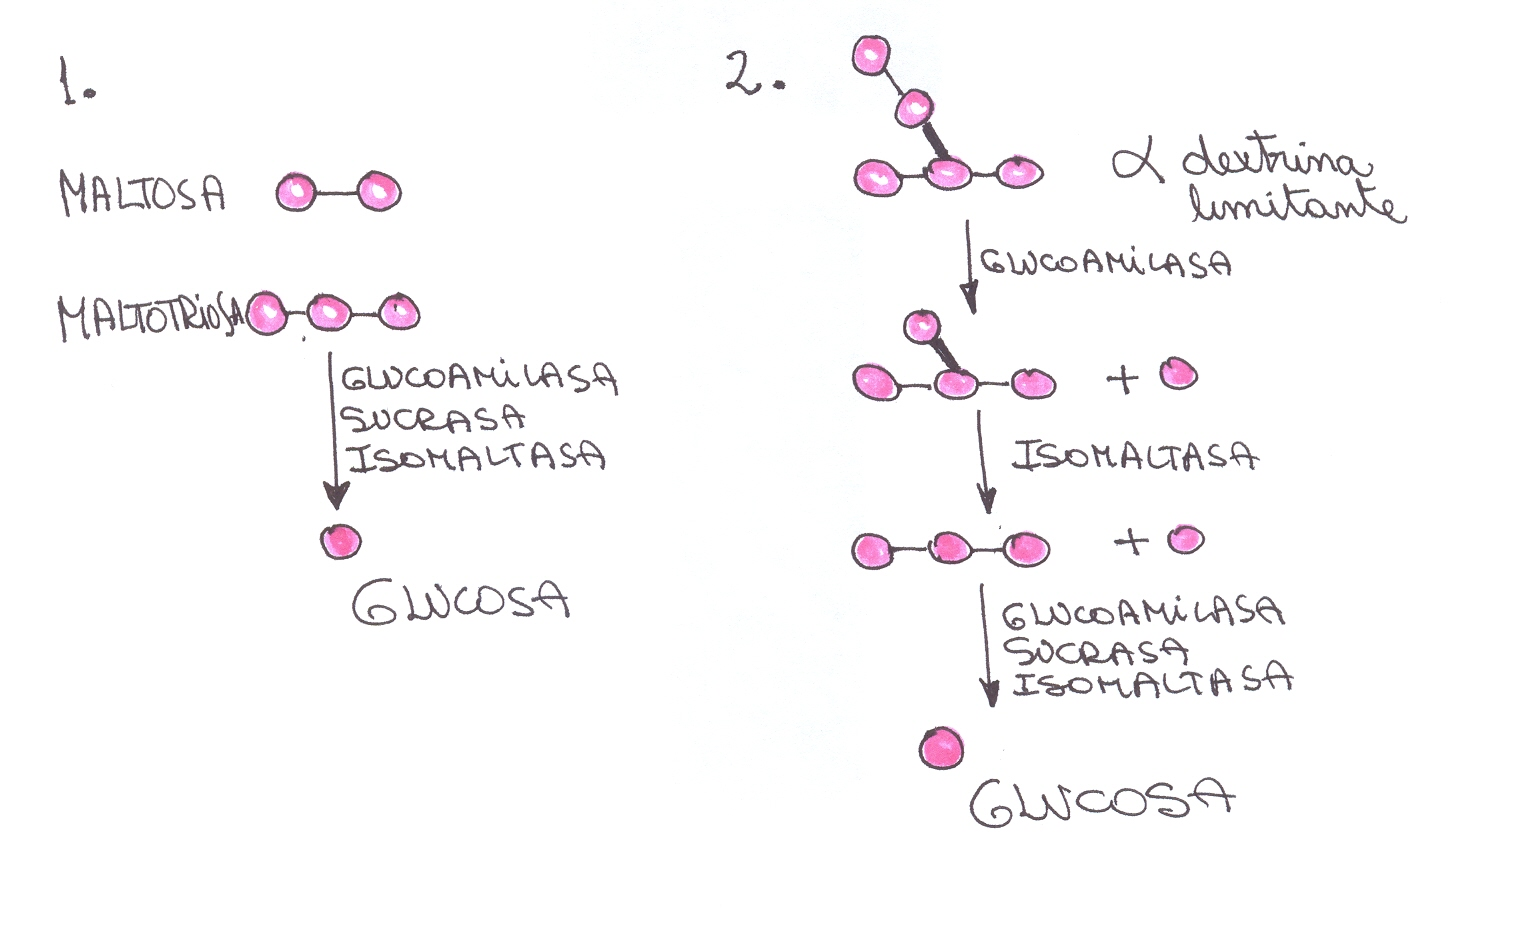 1.
MALTOSA
MALTOTRIOSA
GLUCOAMILASA
SUCRASA
ISOMALTASA
GLUCOSA
2.
α dextrina
limitante
GLUCOAMILASA
+
ISOMALTASA
+
GLUCOAMILASA
SUCRASA
ISOMALTASA
GLUCOSA